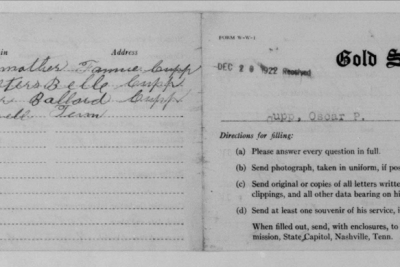 in Address
mother Fannie Cupp
sters Belle Cupp
Ballard Cupp
Tenn
FORM W-W-1
DEC 29 1922 Received
Gold S
Cupp, Oscar P.
Directions for filing:
(a) Please answer every question in full.
(b) Send photograph, taken in uniform, if pos
(c) Send original or copies of all letters writte
clippings, and all other data bearing on hi
(d) Send at least one souvenir of his service, i
When filled out, send, with enclosures, to
mission, State Capitol, Nashville, Tenn.